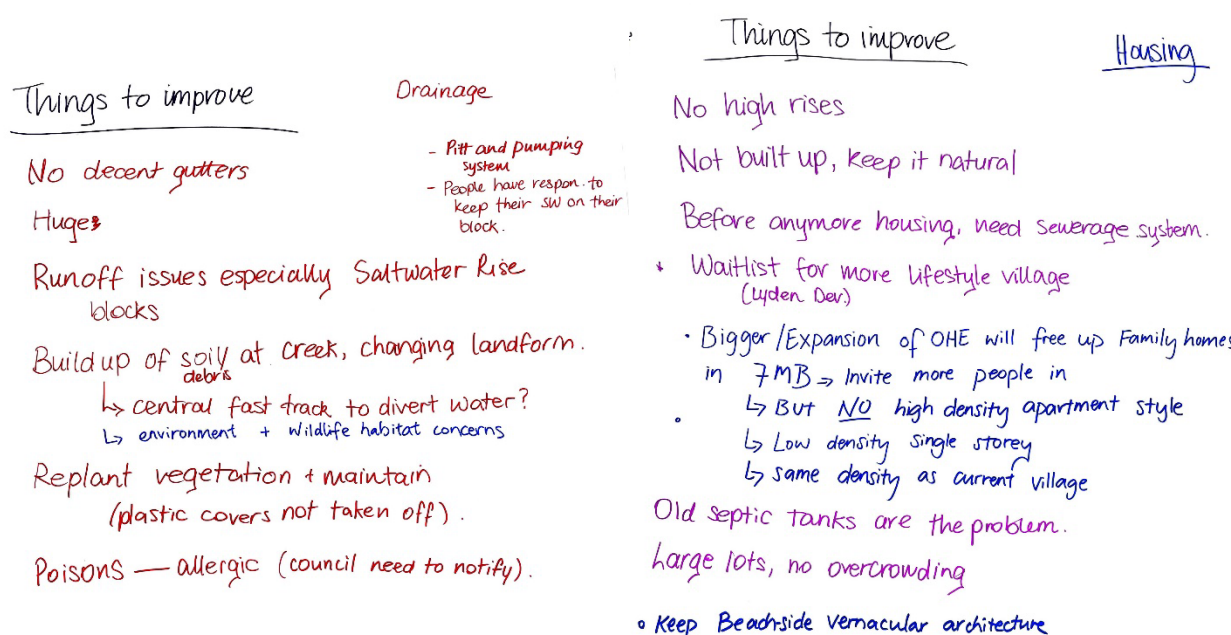 Things to improve
Drainage
- Pitt and pumping
system
- People have respon. to
keep their SW on their
block.
No decent gutters
Huge
Runoff issues especially Saltwater Rise
blocks
Build up of soil/ at creek, changing landform.
debris
↳ central fast track to divert water?
↳ environment + wildlife habitat concerns
Replant vegetation + maintain
(plastic covers not taken off).
Poisons — allergic (council need to notify).
Things to improve
Housing
No high rises
Not built up, keep it natural
Before anymore housing, need sewerage system.
* Waitlist for more lifestyle village
(Lyden Dev.)
• Bigger/Expansion of OHE will free up Family homes
in 7MB ⇒ Invite more people in
↳ But NO high density apartment style
↳ Low density single storey
↳ same density as current village
Old septic tanks are the problem.
Large lots, no overcrowding
• Keep Beach-side vernacular architecture